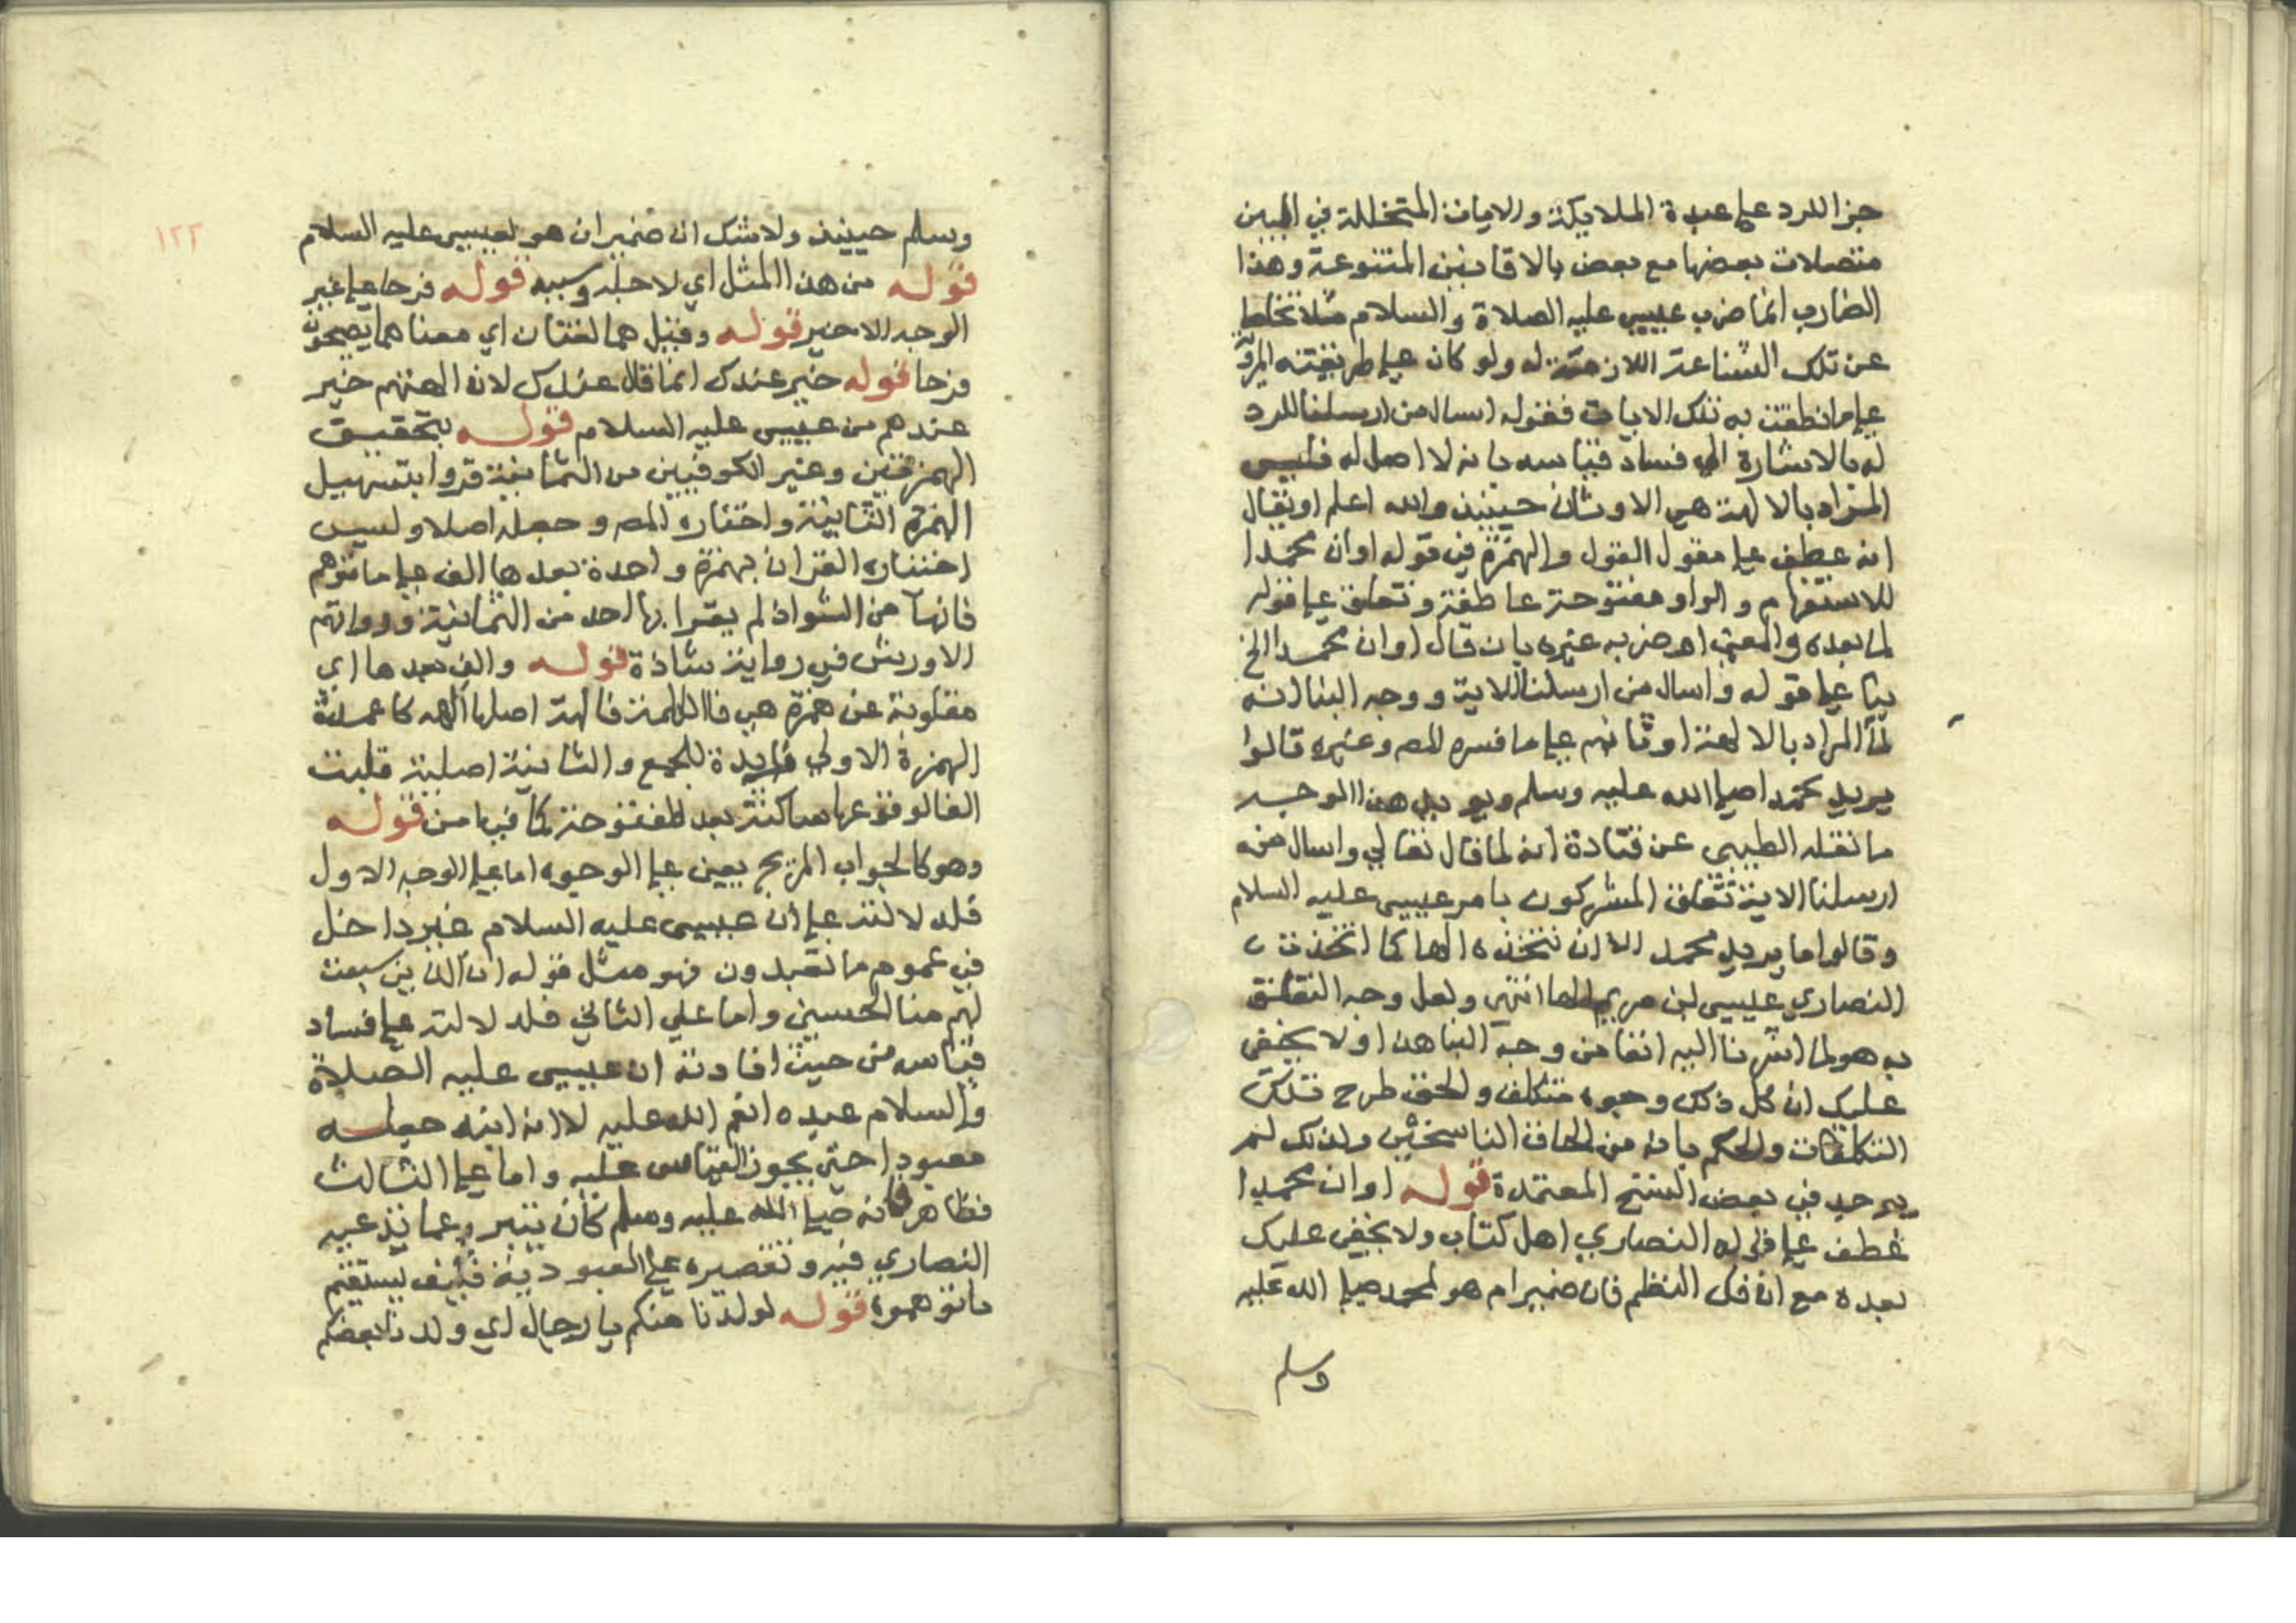 جزا للرد على عبدة الملايكة والايات المتخللة في البين
متصلات بعضها مع بعض بالافانين المتنوعة وهذا
الضارب انما ضرب عيسى عليه الصلاة والسلام مثلا
عن تلك الشناعة اللازمة له ولو كان على طريقته
على ما نطقت به تلك الايات فقوله اسال من ارسلنا للرد
له بالاشارة الى فساد قياسه بانه لا اصل له فليس
المراد بالالهة هي الاوثان حينيذ والله اعلم او يقال
انه عطف على مقول القول والهمزة في قوله اوان محمدا
للاستفهام والواو مفتوحة عاطفة وتعلق على قوله
لما بعده والمعنى اوضربه غيره بان قال اوان محمدا الخ
بنا على قوله واسال من ارسلنا الاية ووجه البنا انه
لما المراد بالالهة اوثانهم على ما فسره المصـ وغيره قالوا
يريد محمدا صلى الله عليه وسلم ويويد هذا الوجه
ما نقله الطيبي عن قتادة انه لما قال تعالى واسال من
ارسلنا الاية تعلق المشركون بامر عيسى عليه السلام
وقالوا ما يريد محمد الا ان نتخذه الها كما اتخذت
النصارى عيسى ابن مريم الها انتهى ولعل وجه التعلق
به هو لما اشرنا اليه انفا من وجه البنا هذا ولا يخفى
عليك ان كل ذلك وجوه متكلفة والحق طرح تلك
التكلفات والحكم بانه من الحاق الناسخين ولذلك لم
يوجد في بعض النسخ المعتمدة قوله اوان محمدا
عطف على قوله النصارى اهل كتاب ولا يخفى عليك
بعده مع انه فك النظم فان ضمير ام هو لمحمد صلى الله عليه
وسلم
١٢٢
وسلم حينيذ ولا شك ان ضمير ان هو لعيسى عليه السلام
قوله من هذا المثل اي لاجله وسببه قوله فرحا على غير
الوجه الاخير قوله وقيل هما لغتان اي معناهما يضجون
فرحا قوله خير عندك انما قال عندك لان الهتهم خير
عندهم من عيسى عليه السلام قوله بتحقيق
الهمزتين وغير الكوفيين من الثمانية قروا بتسهيل
الهمزة الثانية واختاره المصـ وجعله اصلا وليس
اختياره القران بهمزة واحدة بعدها الف على ما توهم
فانها من الشواذ لم يقرا بها احد من الثمانية ورواتهم
الا ورش في رواية شاذة قوله والف بعدها اي
مقلوبة عن همزة هي فا الكلمة فالهة اصلها االهه كاعمدة
الهمزة الاولى زايدة للجمع والثانية اصلية قلبت
الفا لوقوعها ساكنة بعد المفتوحة كما في امن قوله
وهو كالجواب المزيح يعين على الوجوه اما على الوجه الاول
فلدلالته على ان عيسى عليه السلام غير داخل
في عموم ما تعبدون فهو مثل قوله ان الذين سبقت
لهم منا الحسنى واما على الثاني فلدلالته على فساد
قياسه من حيث افادته ان عيسى عليه الصلاة
والسلام عبده انعم الله عليه لا انه ابنه جعلـه
معبودا حتى يجوز القياس عليه واما على الثالث
فظاهر فانه صلى الله عليه وسلم كان يتبرء عما تدعيه
النصارى فيه وتقصيره على العبودية فكيف يستقيم
ما توهموه قوله لولدنا منكم يا رجال اي ولدنا بعضكم